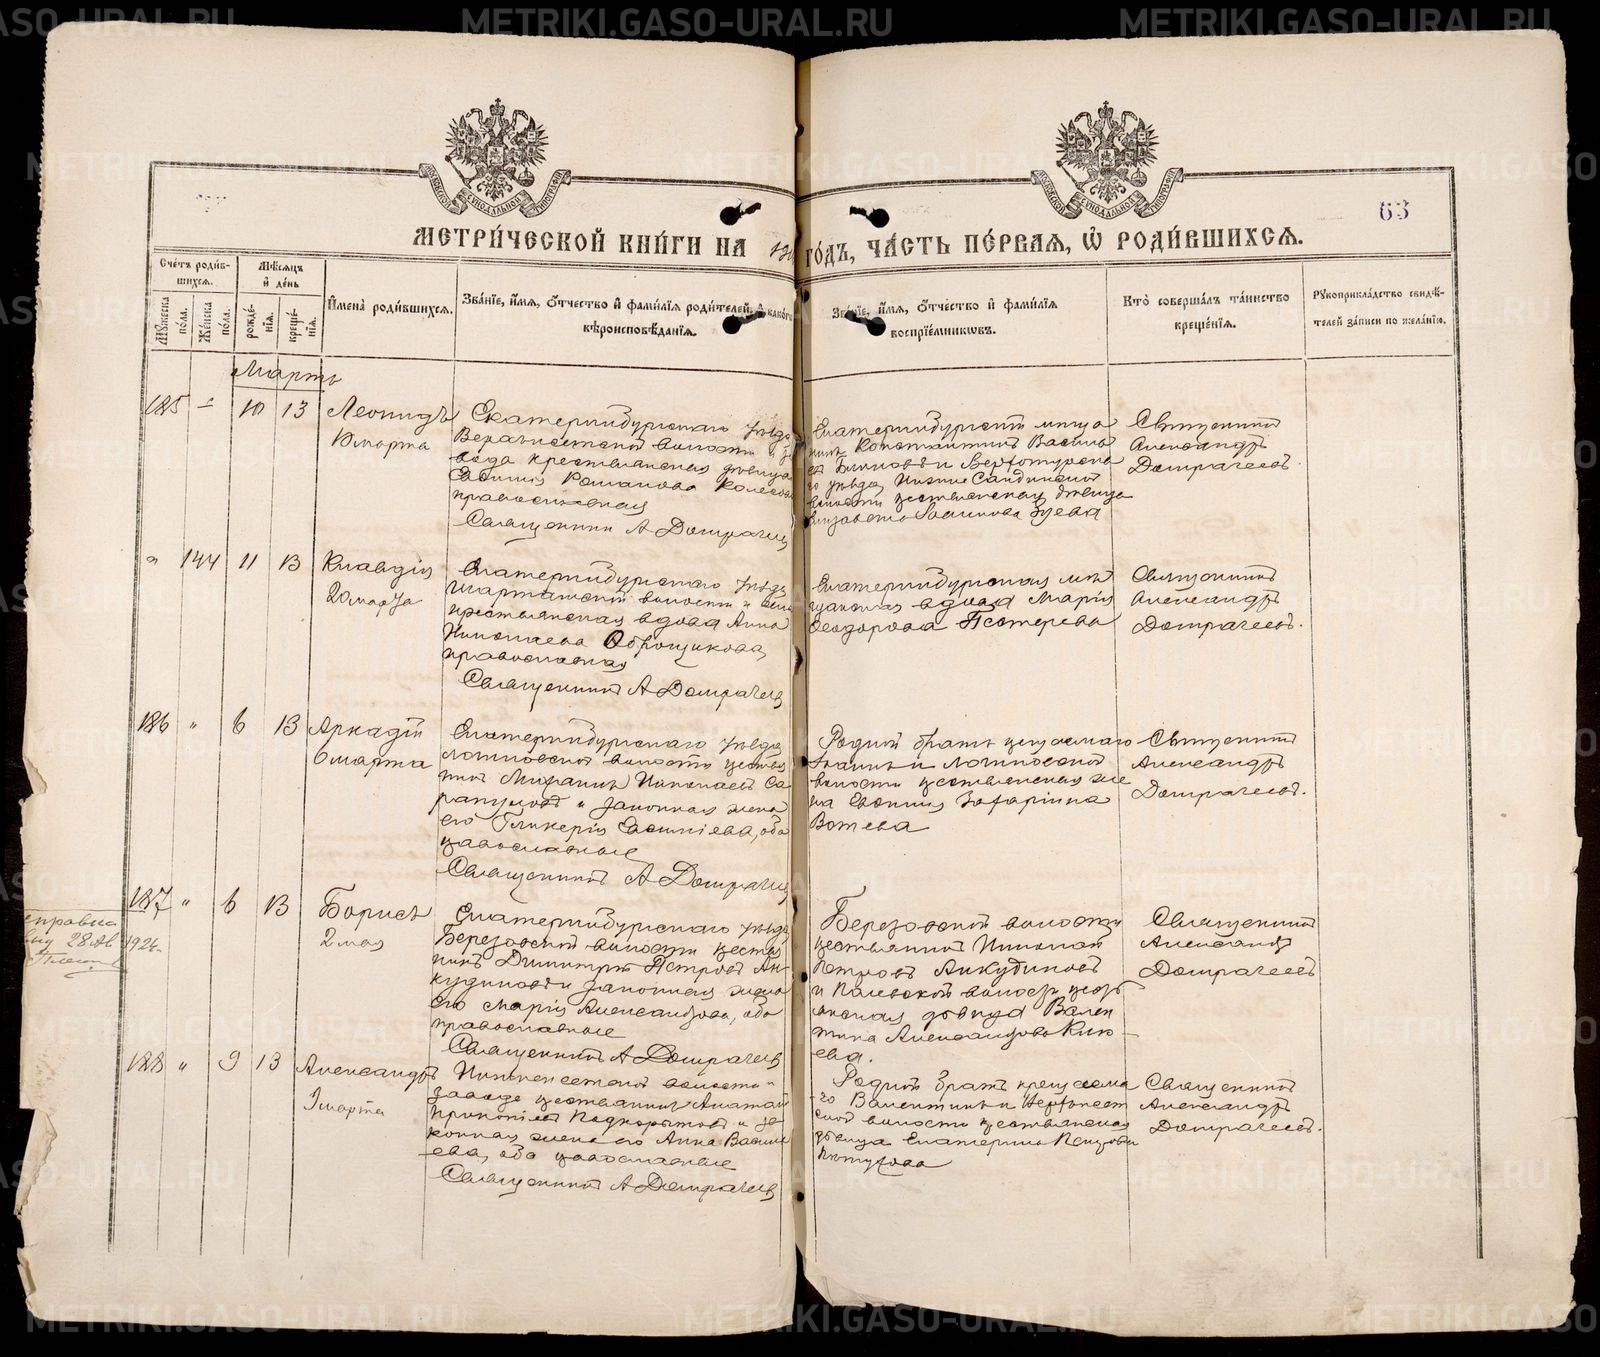 METRIKI.GASO-URAL.RU
63
МЕТРИ́ЧЕСКОЙ КНИ́ГИ НА
ГО́ДЪ, ЧА́СТЬ ПЕ́РВАЯ, Ѡ РОДИ́ВШИХСЯ.
Сче́тъ роди́в-
шихся.
Му́жеска
по́ла.
Же́нска
по́ла.
Мѣ́сяцъ
и҆ де́нь
рожде́-
нїя.
креще́-
нїя.
И҆мена̀ роди́вшихся.
Зва́нїе, и҆́мя, ѻ҆́тчество и҆ фами́лїя роди́телей, и҆ како́гѡ
вѣроисповѣ́данїя.
Зва́нїе, и҆́мя, ѻ҆́тчество и҆ фами́лїя
воспрїе́мникѡвъ.
Кто̀ соверша́лъ та́инство
креще́нїя.
Рꙋкоприкла́дство свидѣ́-
телей за́писи по жела́нїю.
Мартъ
185 – 10 13
Леонидъ
10 марта
Екатеринбургскаго уѣзда
Верхъисетской волости и за
вода крестьянская дѣвица
Евдокия Романова Колесова
православная
Священникъ А Домрачевъ
Екатеринбургскій мѣща
нинъ Константинъ Василь
евъ Блиновъ и Верхотурска
го уѣзда, Нижне Салдинской
волости крестьянская дѣвица
Елизавета Зуева
Священникъ
Александръ
Домрачевъ
" 144 11 13
Клавдія
20 марта
Екатеринбургскаго уѣзда
Шарташской волости и села
крестьянская вдова Анна
Николаева Оброщикова,
православная
Священникъ А Домрачевъ
Екатеринбургская мѣ
щанская вдова Марія
Ѳеодорова Пстерева
Священникъ
Александръ
Домрачевъ.
186 " 6 13
Аркадій
6 марта
Екатеринбургскаго уѣзда
Логиновской волости крестья
нинъ Михаилъ Николаевъ Са
рапуловъ и законная жена
его Гликерія Евдокимова, оба
православные
Священникъ А Домрачевъ
Родной братъ крещаемаго
и Логиновской
волости крестьянская же
на Евдокия Захаріина
Вотева
Священникъ
Александръ
Домрачевъ.
187 " 6 13
Борисъ
2 мая
справка
28 1926 г.
Екатеринбургскаго уѣзда
Березовской волости крестья
нинъ Димитрій Петровъ Ан-
кудиновъ и законная жена
его Марія Александрова, оба
православные
Священникъ А Домрачевъ
Березовской волости
крестьянинъ Николай
Петровъ Анкудиновъ
и Полевской волости кресть
янская дѣвица Вален
тина Александрова Кня-
ева.
Священникъ
Александръ
Домрачевъ
188 " 9 13
Александръ
9 марта
Нижнеисетской волости и
завода крестьянинъ
Прокопіевъ Подкорытовъ и за
конная жена его Анна Василь
ева, оба православные
Священникъ А Домрачевъ
Родной братъ крещаема
го Валентинъ и
ской волости крестьянская
дѣвица Екатерина
Священникъ
Александръ
Домрачевъ.